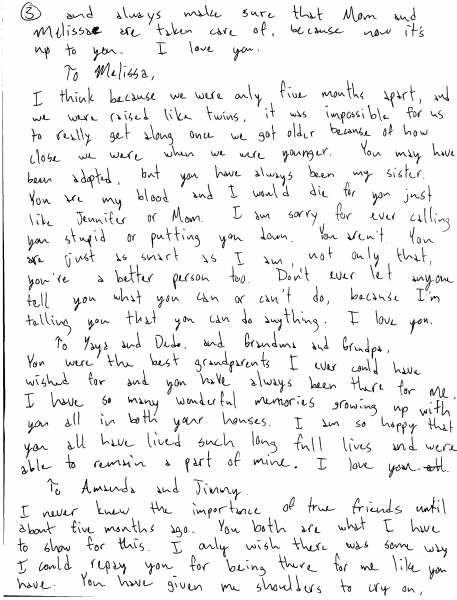 ③ and always make sure that Mom and
Melissa are taken care of, because now it's
up to you. I love you.
To Melissa,
I think because we were only five months apart, and
we were raised like twins, it was impossible for us
to really get along once we got older because of how
close we were when we were younger. You may have
been adopted, but you have always been my sister.
You are my blood and I would die for you just
like Jennifer or Mom. I am sorry for ever calling
you stupid or putting you down. You aren't. You
are just as smart as I am, not only that,
you're a better person too. Don't ever let anyone
tell you what you can or can't do, because I'm
telling you that you can do anything. I love you.
To Yaya and Dedo, and Grandma and Grandpa,
You were the best grandparents I ever could have
wished for and you have always been there for me.
I have so many wonderful memories growing up with
you all in both your houses. I am so happy that
you all have lived such long full lives and were
able to remain a part of mine. I love you all.
To Amanda and Jimmy.
I never knew the importance of true friends until
about five months ago. You both are what I have
to show for this. I only wish there was some way
I could repay you for being there for me like you
have. You have given me shoulders to cry on,